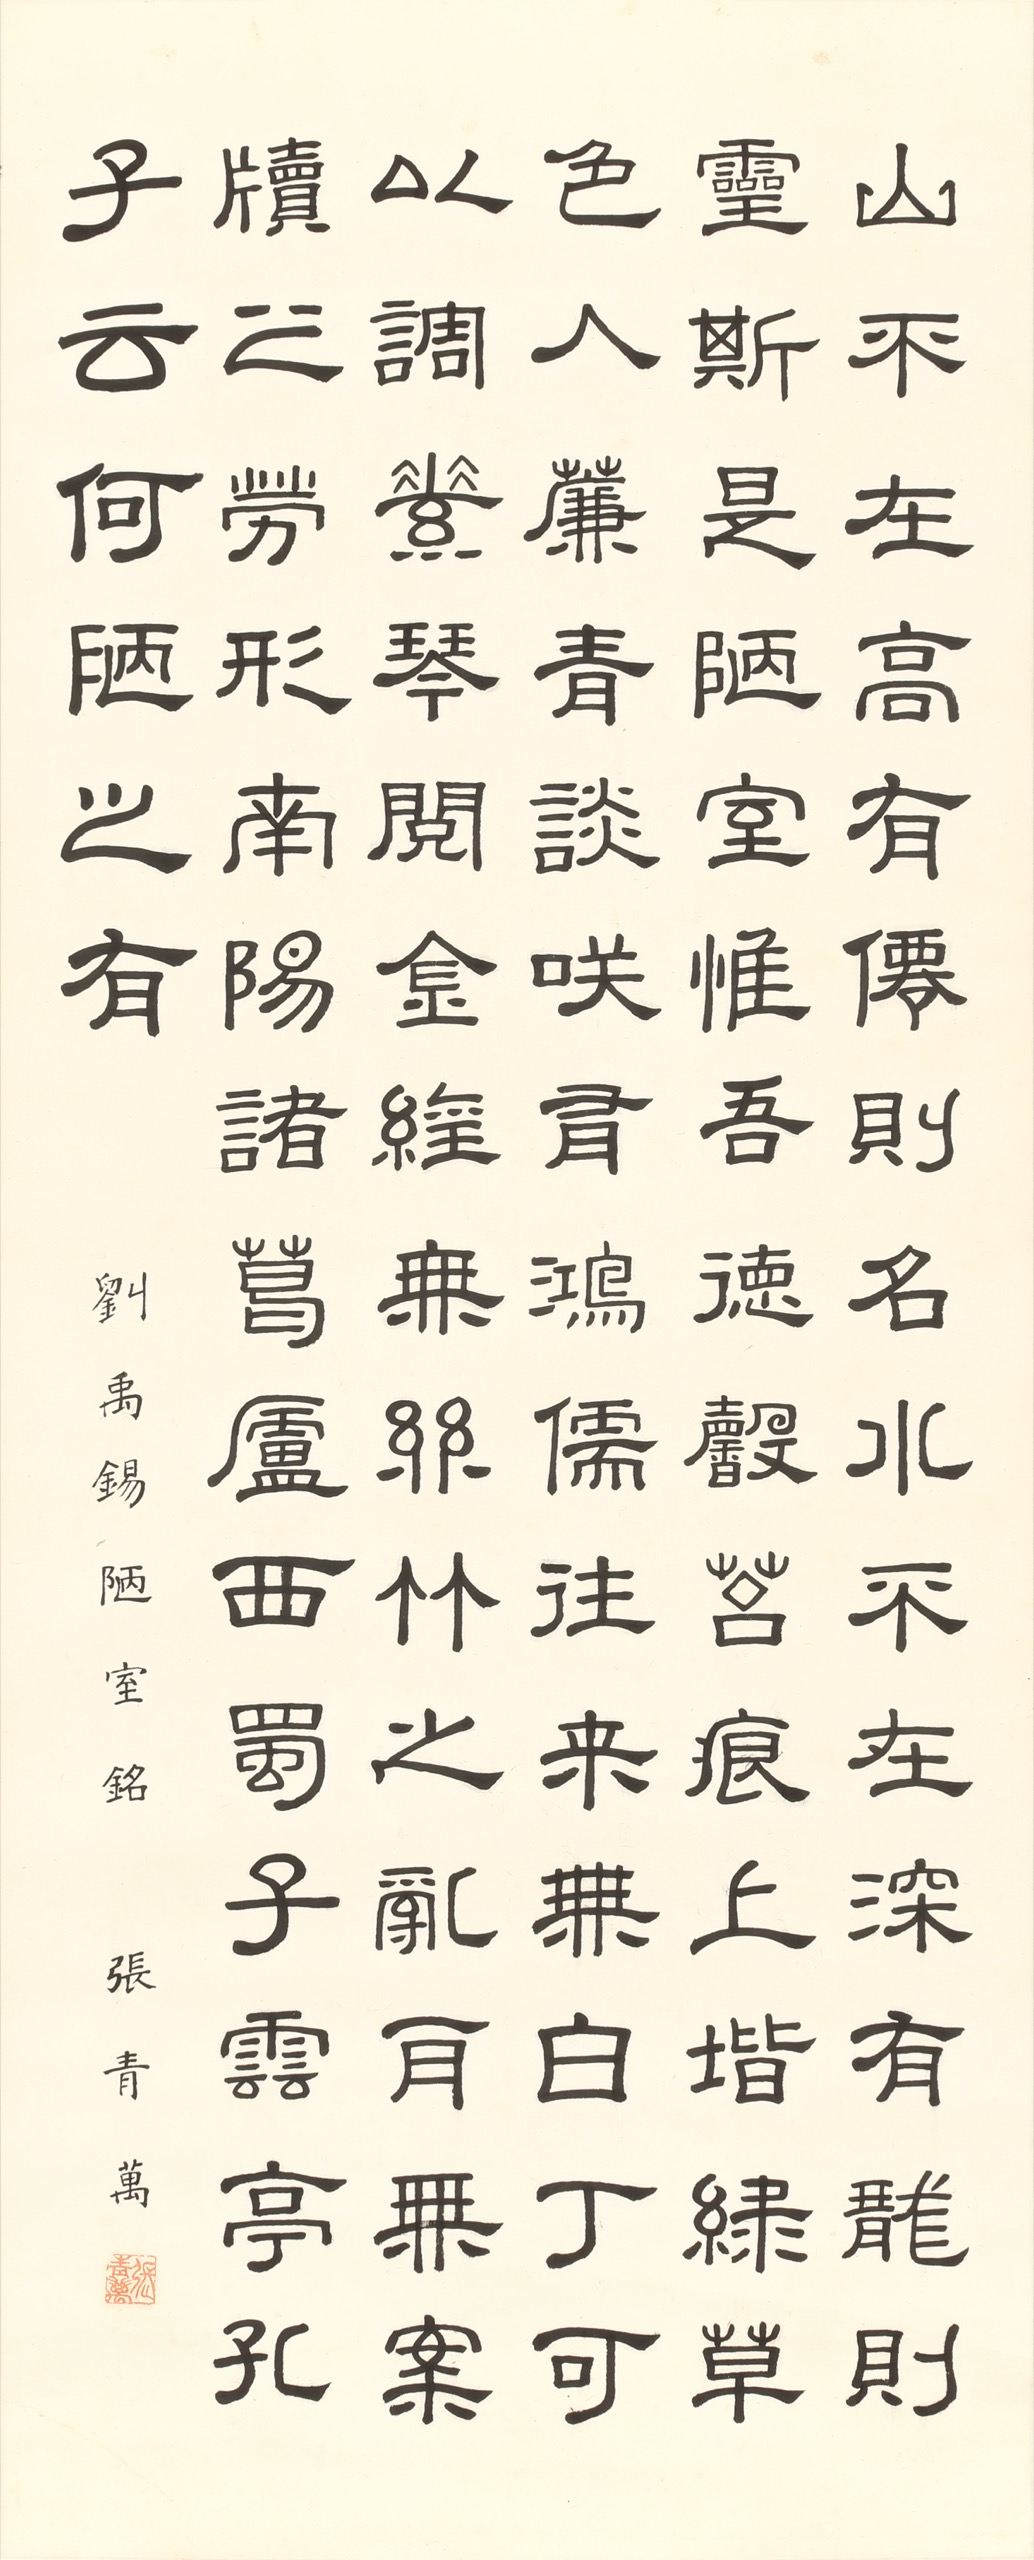 山不在高有僊則名水不在深有龍則
靈斯是陋室惟吾德馨苔痕上堦綠草
色入簾青談咲有鴻儒往来無白丁可
以調素琴閱金經無絲竹之亂耳無案
牘之勞形南陽諸葛廬西蜀子雲亭孔
子云何陋之有
劉禹錫陋室銘 張青萬
張青萬